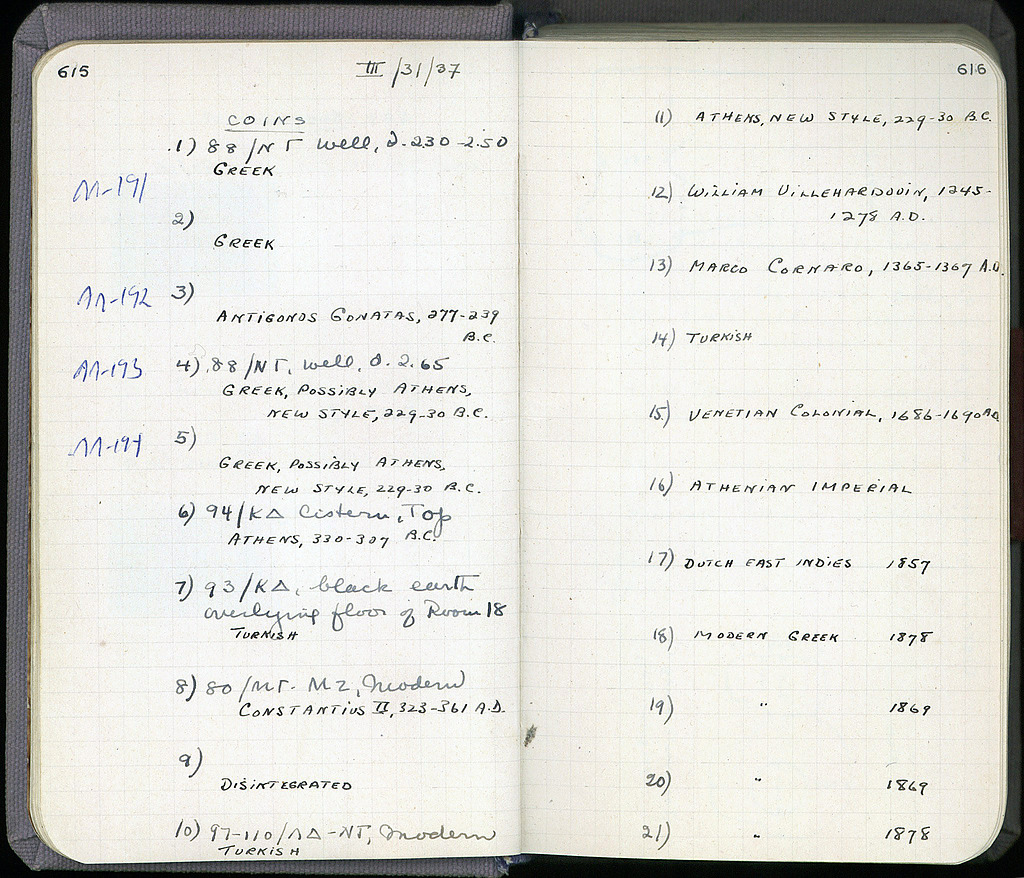 615
III/31/37
COINS
1) 88/ΝΓ well, d. 2.30-2.50
GREEK
ΛΛ-191
2)
GREEK
ΛΛ-192 3)
ANTIGONOS GONATAS, 277-239
B.C.
ΛΛ-193 4) 88/ΝΓ, well, d. 2.65
GREEK, POSSIBLY ATHENS,
NEW STYLE, 229-30 B.C.
ΛΛ-194 5)
GREEK, POSSIBLY ATHENS,
NEW STYLE, 229-30 B.C.
6) 94/ΚΔ Cistern, Top
ATHENS, 330-307 B.C.
7) 93/ΚΔ, black earth
overlying floor of Room 18
TURKISH
8) 80/ΜΓ- ΜΖ, Modern
CONSTANTIUS II, 323-361 A.D.
9)
DISINTEGRATED
10) 97-110/ΛΔ-ΝΓ, Modern
TURKISH
616
11) ATHENS, NEW STYLE, 229-30 B.C.
12) WILLIAM VILLEHARDOUIN, 1245-
1278 A.D.
13) MARCO CORNARO, 1365-1367 A.D.
14) TURKISH
15) VENETIAN COLONIAL, 1686-1690 A.D.
16) ATHENIAN IMPERIAL
17) DUTCH EAST INDIES 1857
18) MODERN GREEK 1878
19) " 1869
20) " 1869
21) " 1878